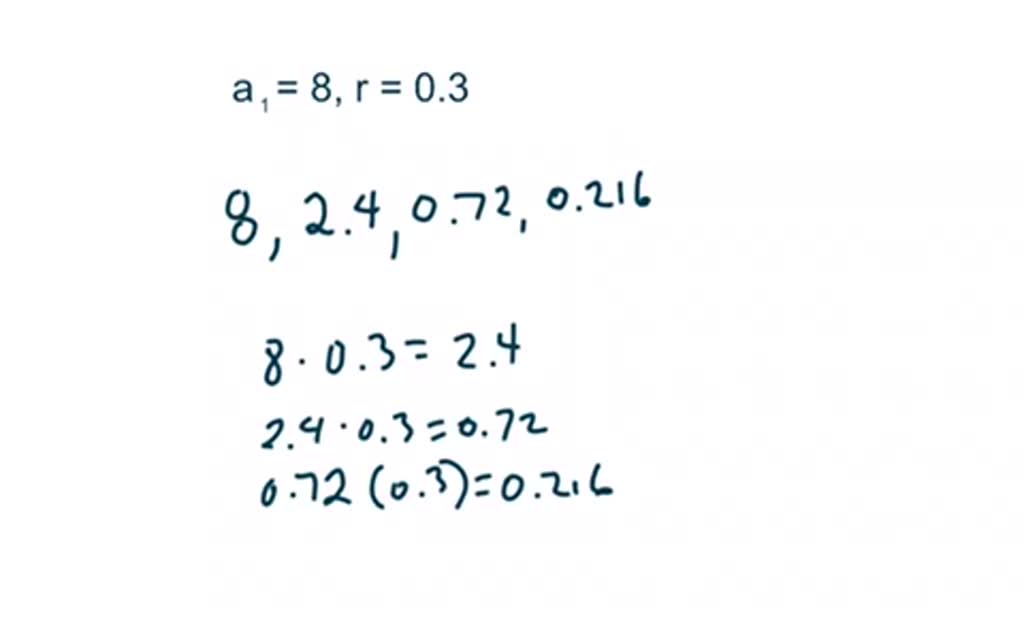 a₁ = 8, r = 0.3
8, 2.4, 0.72, 0.216
8 · 0.3 = 2.4
2.4 · 0.3 = 0.72
0.72 (0.3) = 0.216